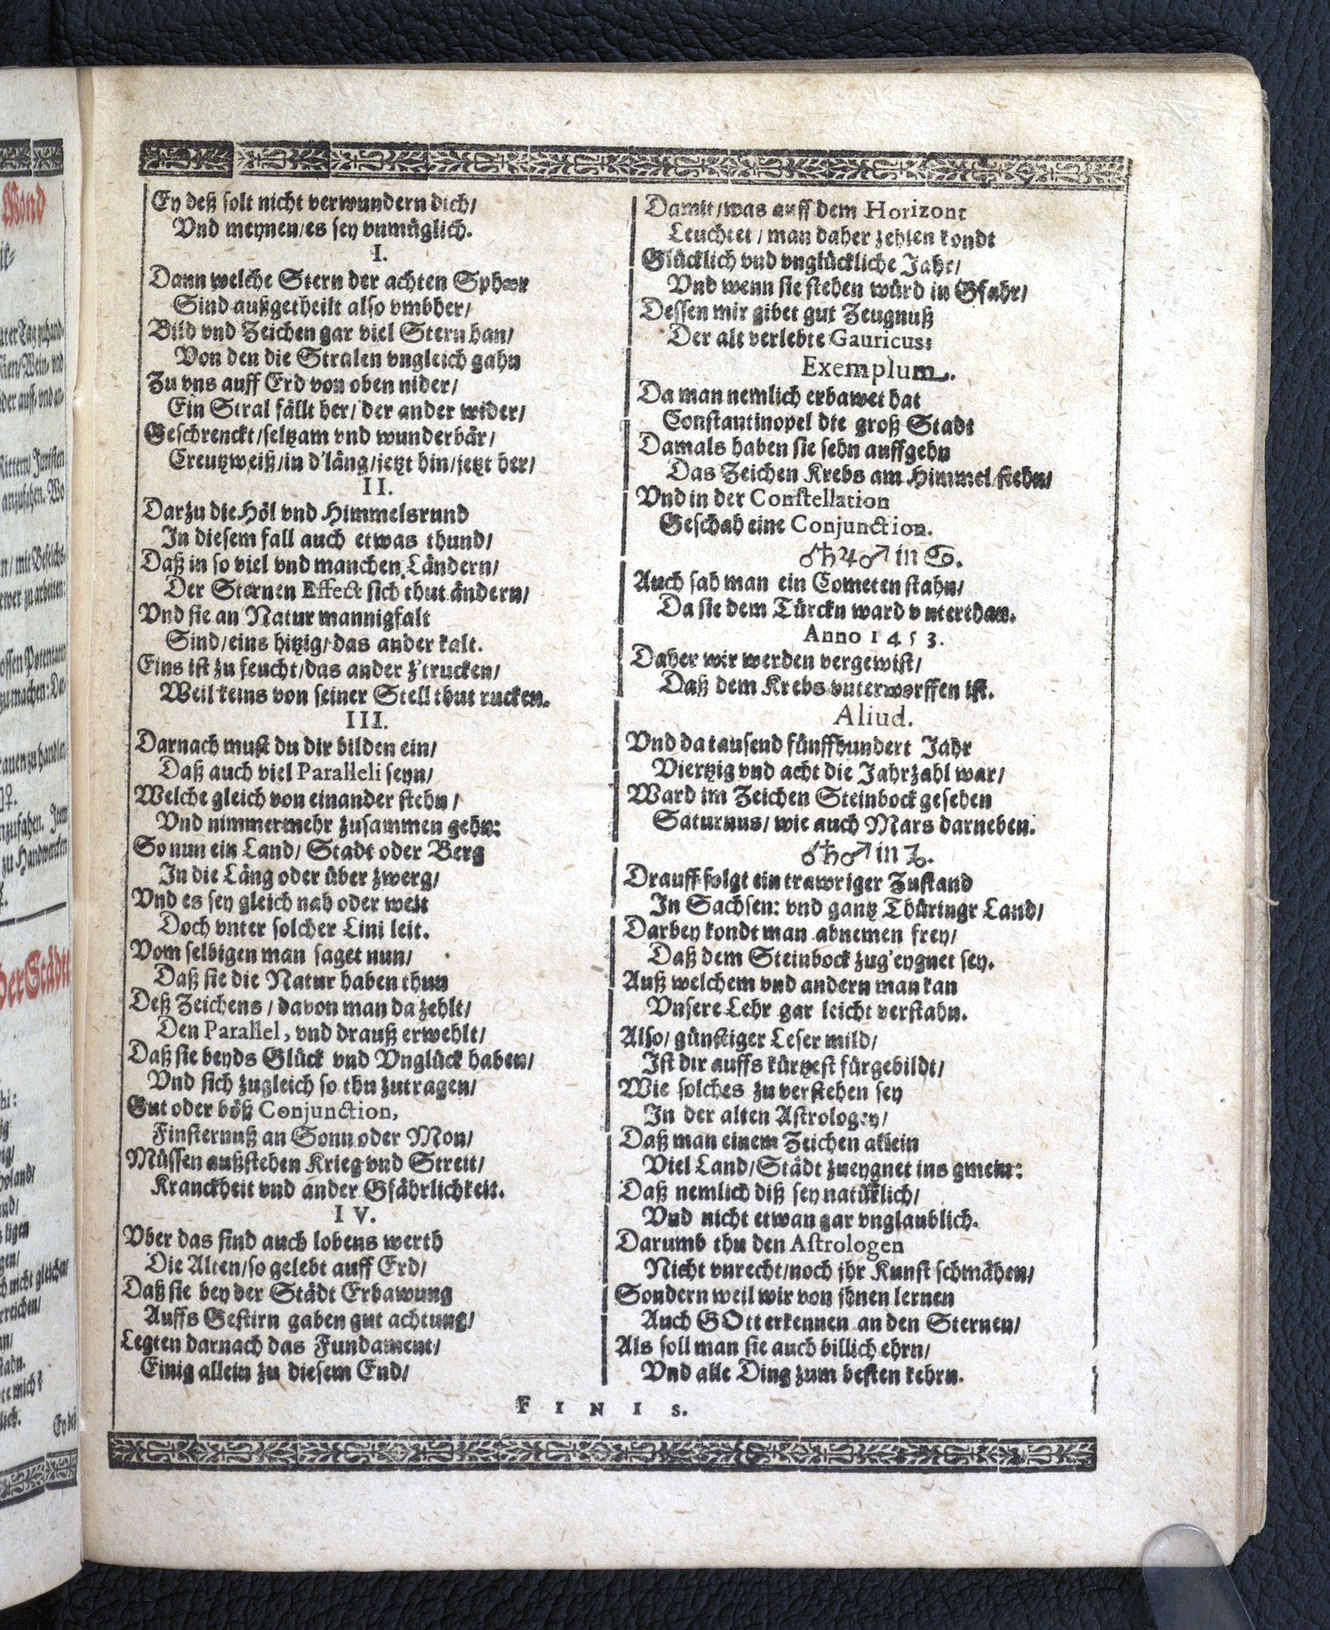 Ey deß solt nicht verwundern dich/
Vnd meynen/es sey vnmüglich.
I.
Dann welche Stern der achten Sphær
Sind außgetheilt also vmbher/
Bild vnd Zeichen gar viel Stern han/
Von den die Stralen vngleich gahn
Zu vns auff Erd von oben nider/
Ein Stral fällt her/der ander wider/
Geschrenckt/seltzam vnd wunderbär/
Creutzweiß/in d'läng/jetzt hin/jetzt her/
II.
Darzu die Höl vnd Himmelsrund
In diesem fall auch etwas thund/
Daß in so viel vnd manchen Ländern/
Der Sternen Effect sich thut ändern/
Vnd sie an Natur mannigfalt
Sind/eins hitzig/das ander kalt.
Eins ist zu feucht/das ander z'trucken/
Weil keins von seiner Stell thut rucken.
III.
Darnach must du dir bilden ein/
Daß auch viel Paralleli seyn/
Welche gleich von einander stehn/
Vnd nimmermehr zusammen gehn:
So nun ein Land/ Stadt oder Berg
In die Läng oder über zwerg/
Vnd es sey gleich nah oder weit
Doch vnter solcher Lini leit.
Vom selbigen man saget nun/
Daß sie die Natur haben thun
Deß Zeichens/davon man da zehlt/
Den Parallel, vnd drauß erwehlt/
Daß sie beyds Glück vnd Vnglück haben/
Vnd sich zugleich so thu zutragen/
Gut oder böß Conjunction,
Finsternuß an Sonn oder Mon/
Müssen außstehen Krieg vnd Streit/
Kranckheit vnd ander Gfährlichkeit.
IV.
Vber das sind auch lobens werth
Die Alten/so gelebt auff Erd/
Daß sie bey der Städt Erbawung
Auffs Gestirn gaben gut achtung/
Legten darnach das Fundament/
Einig allein zu diesem End/
Damit/was auff dem Horizont
Leuchtet/man daher zehlen kondt
Glücklich vnd vnglückliche Jahr/
Vnd wenn sie stehen würd in Gfahr/
Dessen mir gibet gut Zeugnuß
Der alt verlebte Gauricus:
Exemplum.
Da man nemlich erbawet hat
Constantinopel die groß Stadt
Damals haben sie sehn auffgehn
Das Zeichen Krebs am Himmel stehn/
Vnd in der Constellation
Geschah eine Conjunction.
☌♄♃♂ in ♋.
Auch sah man ein Cometen stahn/
Da sie dem Türckn ward vnterthan.
Anno 1453.
Daher wir werden vergewist/
Daß dem Krebs vnterworffen ist.
Aliud.
Vnd da tausend fünffhundert Jahr
Viertzig vnd acht die Jahrzahl war/
Ward im Zeichen Steinbock gesehen
Saturnus/ wie auch Mars darneben.
☌♄♂ in ♑.
Drauff folgt ein trawriger Zustand
In Sachsen: vnd gantz Thüringr Land/
Darbey kondt man abnemen frey/
Daß dem Steinbock zug'eygnet sey.
Auß welchem vnd andern man kan
Vnsere Lehr gar leicht verstahn.
Also/ günstiger Leser mild/
Ist dir auffs kürtzest fürgebildt/
Wie solches zu verstehen sey
In der alten Astrologey/
Daß man einem Zeichen allein
Viel Land/Städt zueygnet ins gmein:
Daß nemlich diß sey natürlich/
Vnd nicht etwan gar vnglaublich.
Darumb thu den Astrologen
Nicht vnrecht/noch jhr Kunst schmähen/
Sondern weil wir von jhnen lernen
Auch GOtt erkennen an den Sternen/
Als soll man sie auch billich ehrn/
Vnd alle Ding zum besten kehrn.
FINIS.